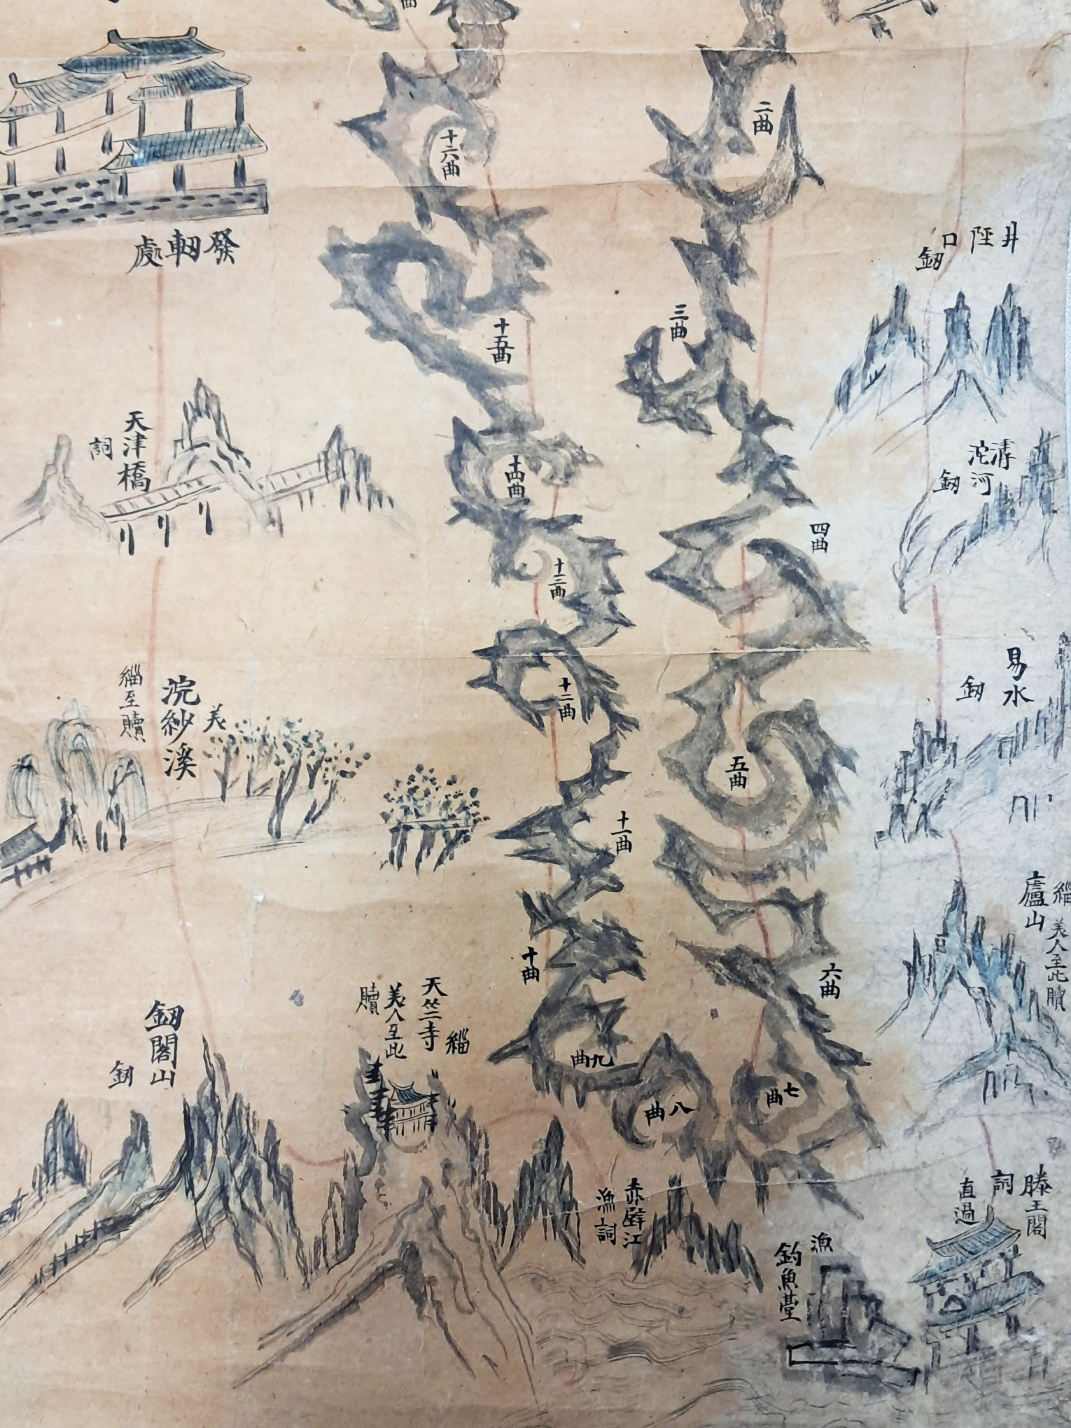 二曲
十六曲
發軔處
井陘口
釰
三曲
十五曲
天津橋
詞
滹沱河
釰
十四曲
四曲
十三曲
易水
釰
緇至贖
浣紗溪
美
十二曲
五曲
十一曲
廬山
緇
美人至此
贖
十曲
六曲
天竺寺
緇
美人至此
贖
釰閣山
釰
九曲
八曲
七曲
滕王閣
詞
直過
赤壁江
漁
詞
漁
釣魚臺